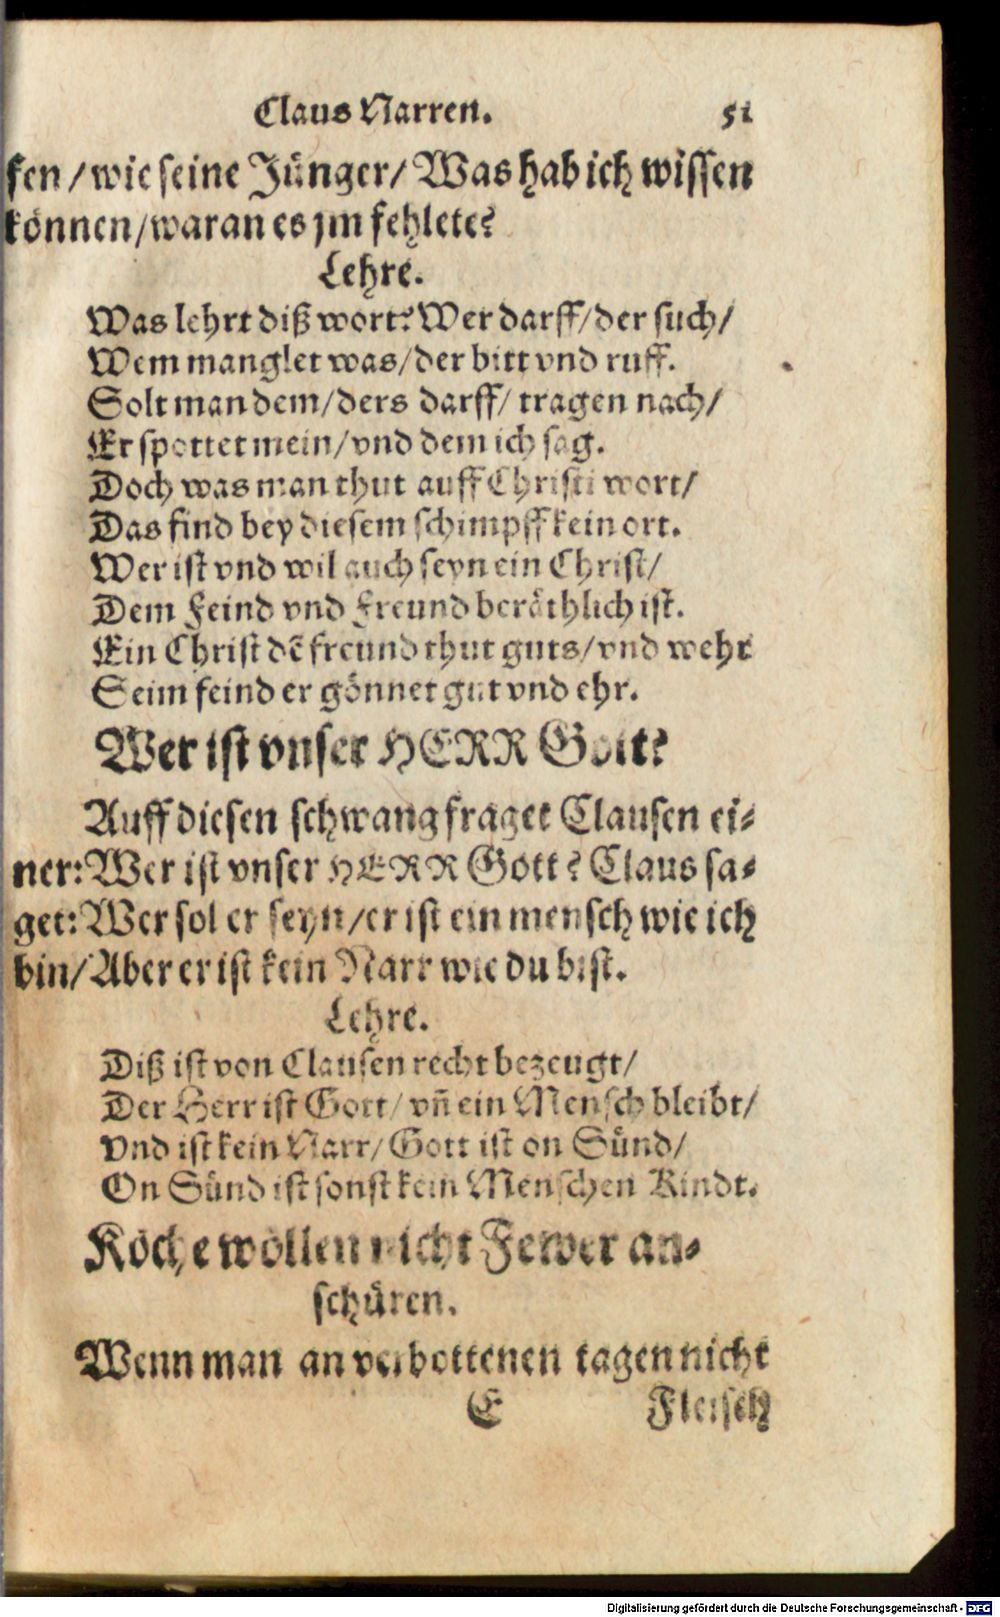 Claus Narren. 51
fen / wie seine Jünger / Was hab ich wissen
können / waran es jm fehlete?
Lehre.
Was lehrt diß wort? Wer darff / der such /
Wem manglet was / der bitt vnd ruff.
Solt man dem / ders darff / tragen nach /
Er spottet mein / vnd dem ich sag.
Doch was man thut auff Christi wort /
Das find bey diesem schimpff kein ort.
Wer ist vnd wil auch seyn ein Christ /
Dem Feind vnd Freund beräthlich ist.
Ein Christ dē freund thut guts / vnd wehr
Seim feind er gönnet gut vnd ehr.
Wer ist vnser HERR Gott?
Auff diesen schwang fraget Clausen ei⸗
ner: Wer ist vnser HERR Gott? Claus sa⸗
get: Wer sol er seyn / er ist ein mensch wie ich
bin / Aber er ist kein Narr wie du bist.
Lehre.
Diß ist von Clausen recht bezeugt /
Der Herr ist Gott / vñ ein Mensch bleibt /
Vnd ist kein Narr / Gott ist on Sünd /
On Sünd ist sonst kein Menschen Kindt.
Köche wöllen nicht Fewer an⸗
schüren.
Wenn man an verbottenen tagen nicht
E Fleisch
Digitalisierung gefördert durch die Deutsche Forschungsgemeinschaft - DFG